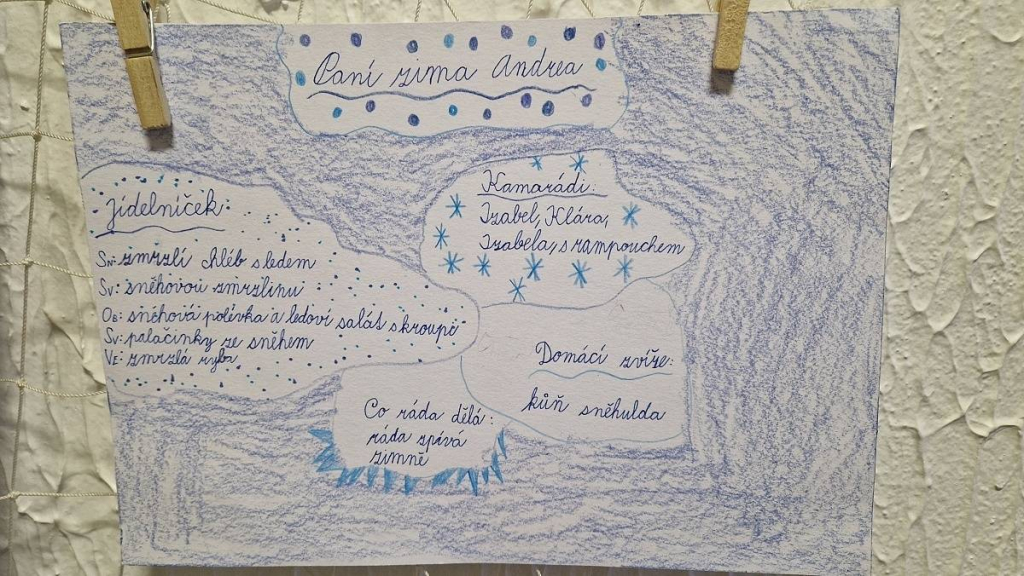 Paní zima Andrea
Jídelníček:
Sn: zmrzlí chléb s ledem
Sv: sněhovou zmrzlinu
Ob: sněhová polévka a ledoví salát s kroupě
Sv: palačinky ze sněhem
Ve: zmrzlá ryba
Kamarádi:
Izabel, Klára,
Izabela, s rampouchem
Domácí zvíře:
kůň sněhulda
Co ráda dělá:
ráda zpívá
zimně